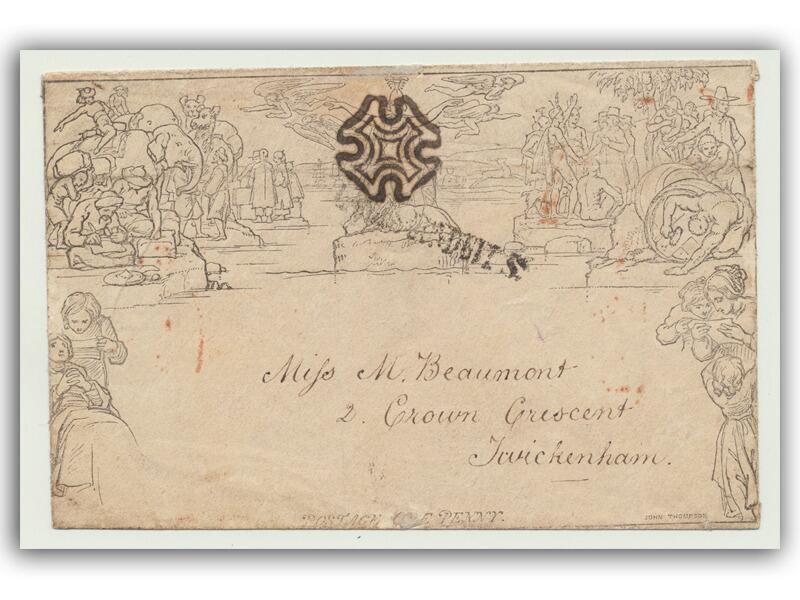 Miſs M. Beaumont
2. Crown Crescent
Twickenham.
POSTAGE PENNY.
JOHN THOMPSON